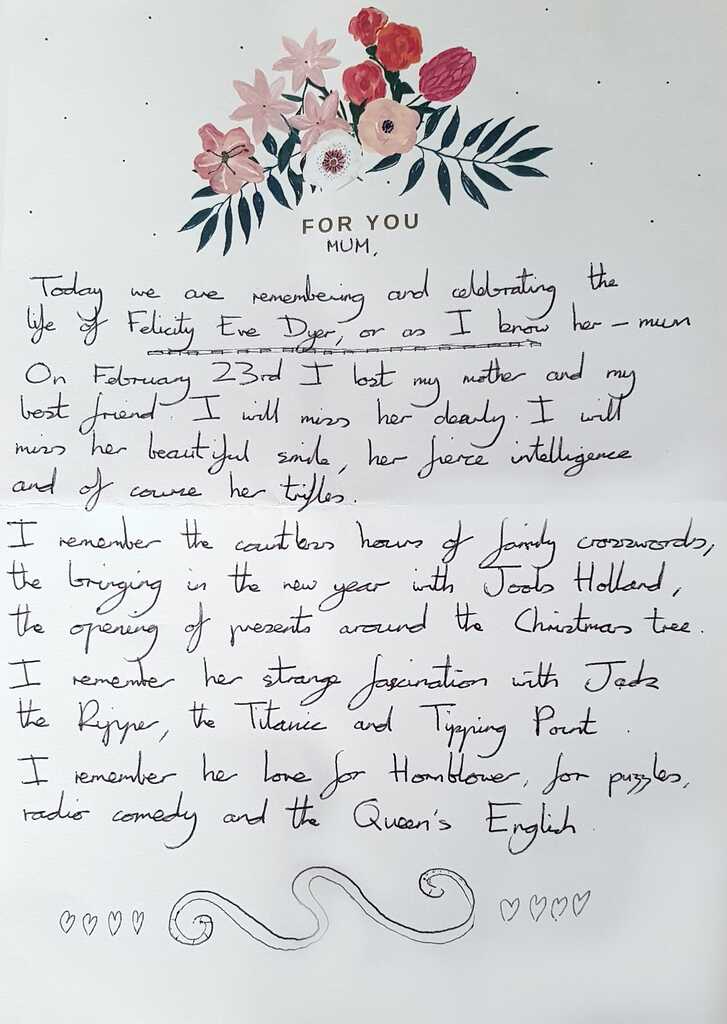 FOR YOU
MUM,
Today we are remembering and celebrating the
life of Felicity Eve Dyer, or as I know her - mum
On February 23rd I lost my mother and my
best friend. I will miss her dearly. I will
miss her beautiful smile, her fierce intelligence
and of course her trifles.
I remember the countless hours of family crosswords,
the bringing in the new year with Jools Holland,
the opening of presents around the Christmas tree.
I remember her strange fascination with Jack
the Ripper, the Titanic and Tipping Point.
I remember her love for Hornblower, for puzzles,
radio comedy and the Queen's English.